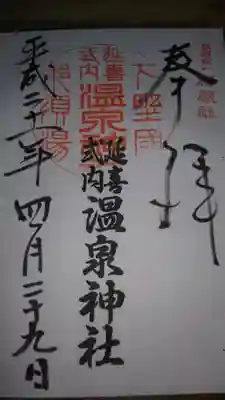 奉拝
下野国
延喜式内
温泉神社
那須湯
延喜式内温泉神社
平成二十一年四月二十九日